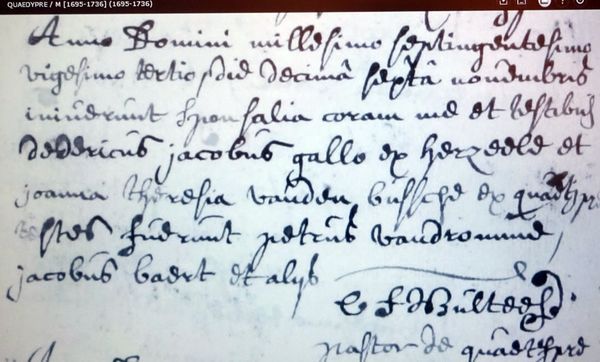 QUAEDYPRE / M [1695-1736] (1695-1736)
Anno Domini millesimo septingentesimo
vigesimo tertio, die decimâ sextâ novembris
iniverunt sponsalia coram me et testibus
dedericus jacobus gallo ex herzeele et
joanna theresia vanden bussche ex quaethpre
testes fuerunt petrus vandromme,
jacobus baert et alys
pastor de quaethpre